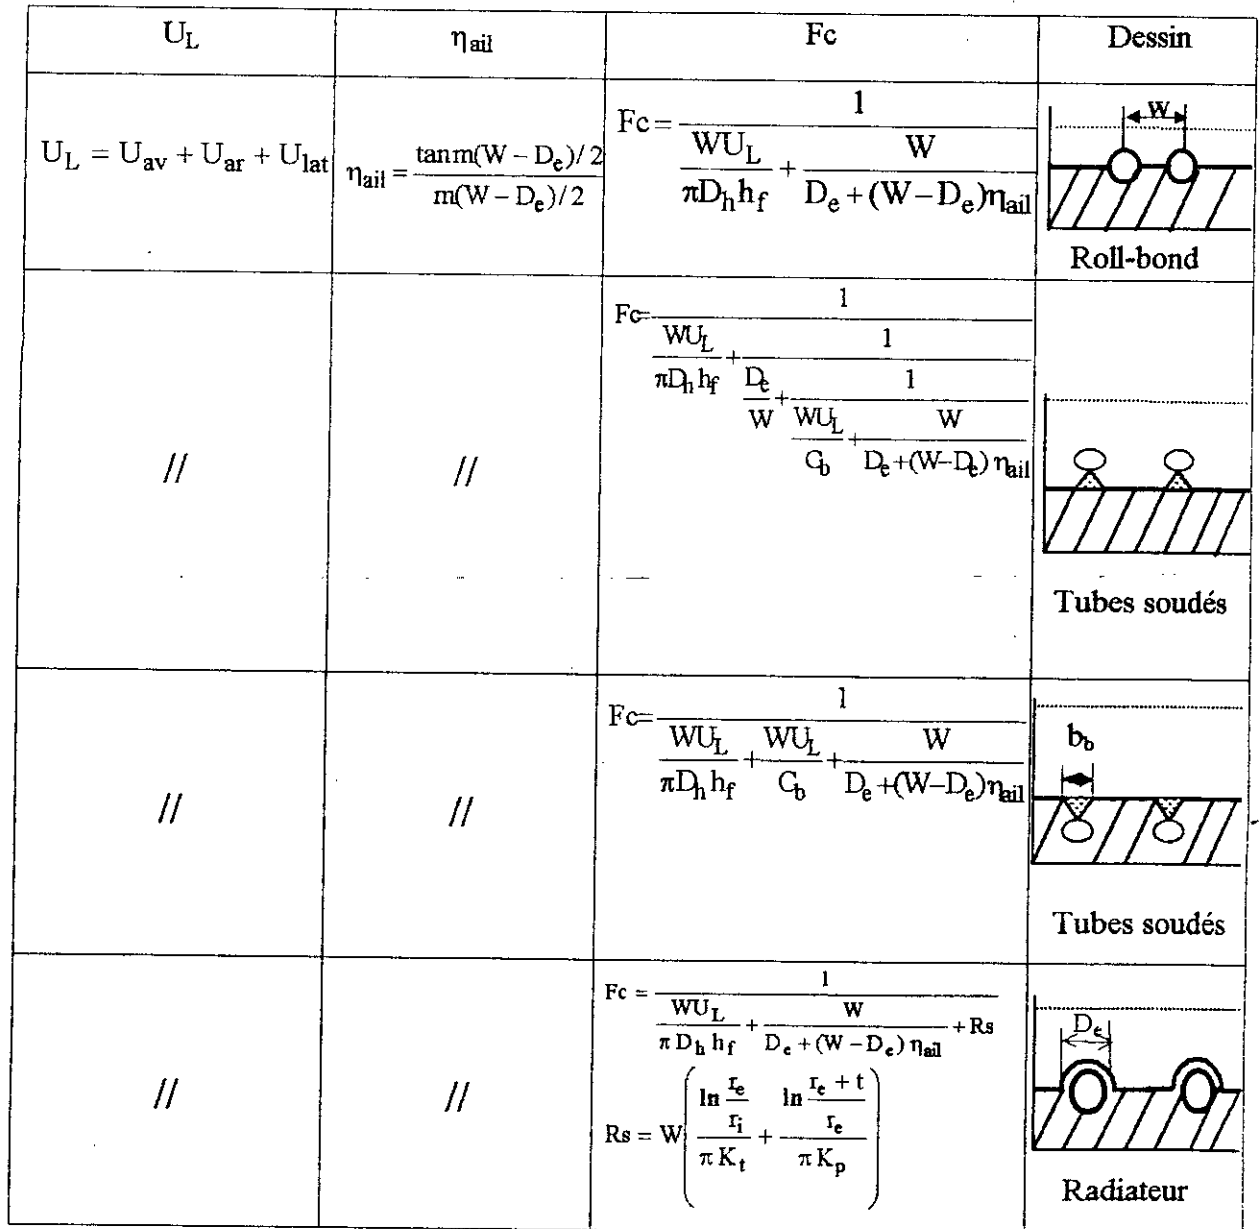 U_L η_ail Fc Dessin
U_L = U_av + U_ar + U_lat η_ail = (tanm(W − D_e)/2)/(m(W − D_e)/2) Fc = 1/(WU_L/(πD_h h_f) + W/(D_e + (W − D_e)η_ail)) W
Roll-bond
// // Fc= 1/(WU_L/(πD_h h_f) + 1/(D_e/W + 1/(WU_L/C_b + W/(D_e+(W−D_e) η_ail))))
Tubes soudés
// // Fc= 1/(WU_L/(πD_h h_f) + WU_L/C_b + W/(D_e+(W−D_e)η_ail)) b_b
Tubes soudés
// // Fc = 1/(WU_L/(π D_h h_f) + W/(D_e + (W − D_e) η_ail) + Rs) D_e
Rs = W( (ln r_e/r_i)/(π K_t) + (ln (r_e + t)/r_e)/(π K_p) )
Radiateur